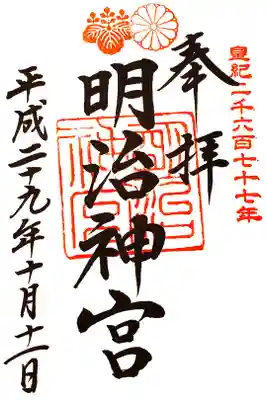 皇紀二千六百七十七年
奉拝
明治神宮
明治神宮
平成二十九年十月十一日